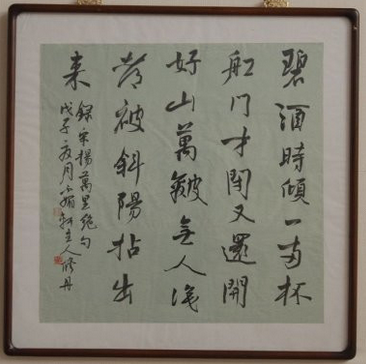 碧酒時傾一兩杯
船門才閉又還開
好山萬皺無人見
都被斜陽拈出
来
錄宋楊萬里絕句
戊子夏月不媚軒主人修丹